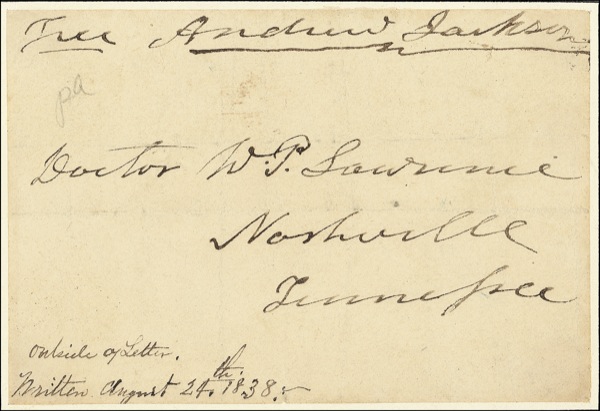 Free Andrew Jackson
pd
Doctor W. P. Lawrence
Nashville
Tennessee
Outside of Letter.
Written August 24th. 1838.